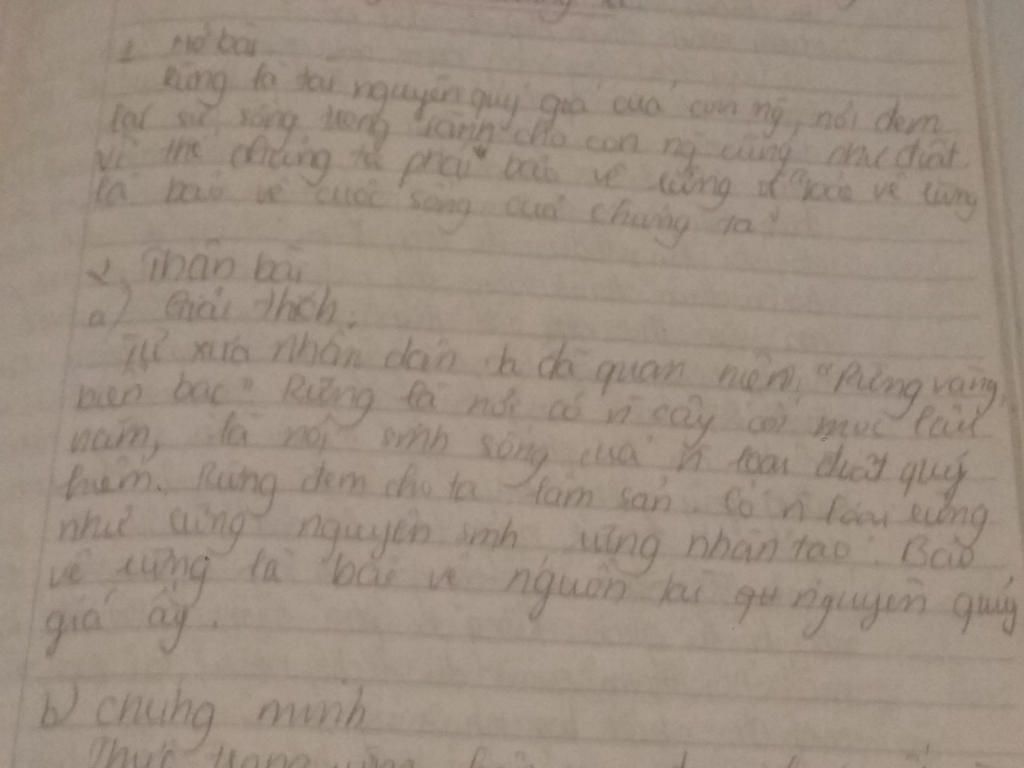 1 Mở bài
Rừng là tài nguyên quý giá của con ng, nơi đem
lại sự sống trong lành cho con ng cũng như
vì thế chúng ta phải bảo vệ rừng vì "bảo vệ rừng
là bảo vệ cuộc sống của chúng ta"
2, Thân bài
a) Giải thích.
Từ xưa nhân dân ta đã quan niệm, "Rừng vàng,
biển bạc" Rừng là nơi có n cây cối mục lâu
năm, là nơi sinh sống của n loài quý
hiếm. Rừng đem cho ta lâm sản. Có n loại rừng
như rừng nguyên sinh, rừng nhân tạo. Bảo
vệ rừng là bảo vệ nguồn tài nguyên quý
giá ấy.
b) chứng minh
Thực trạng rừng